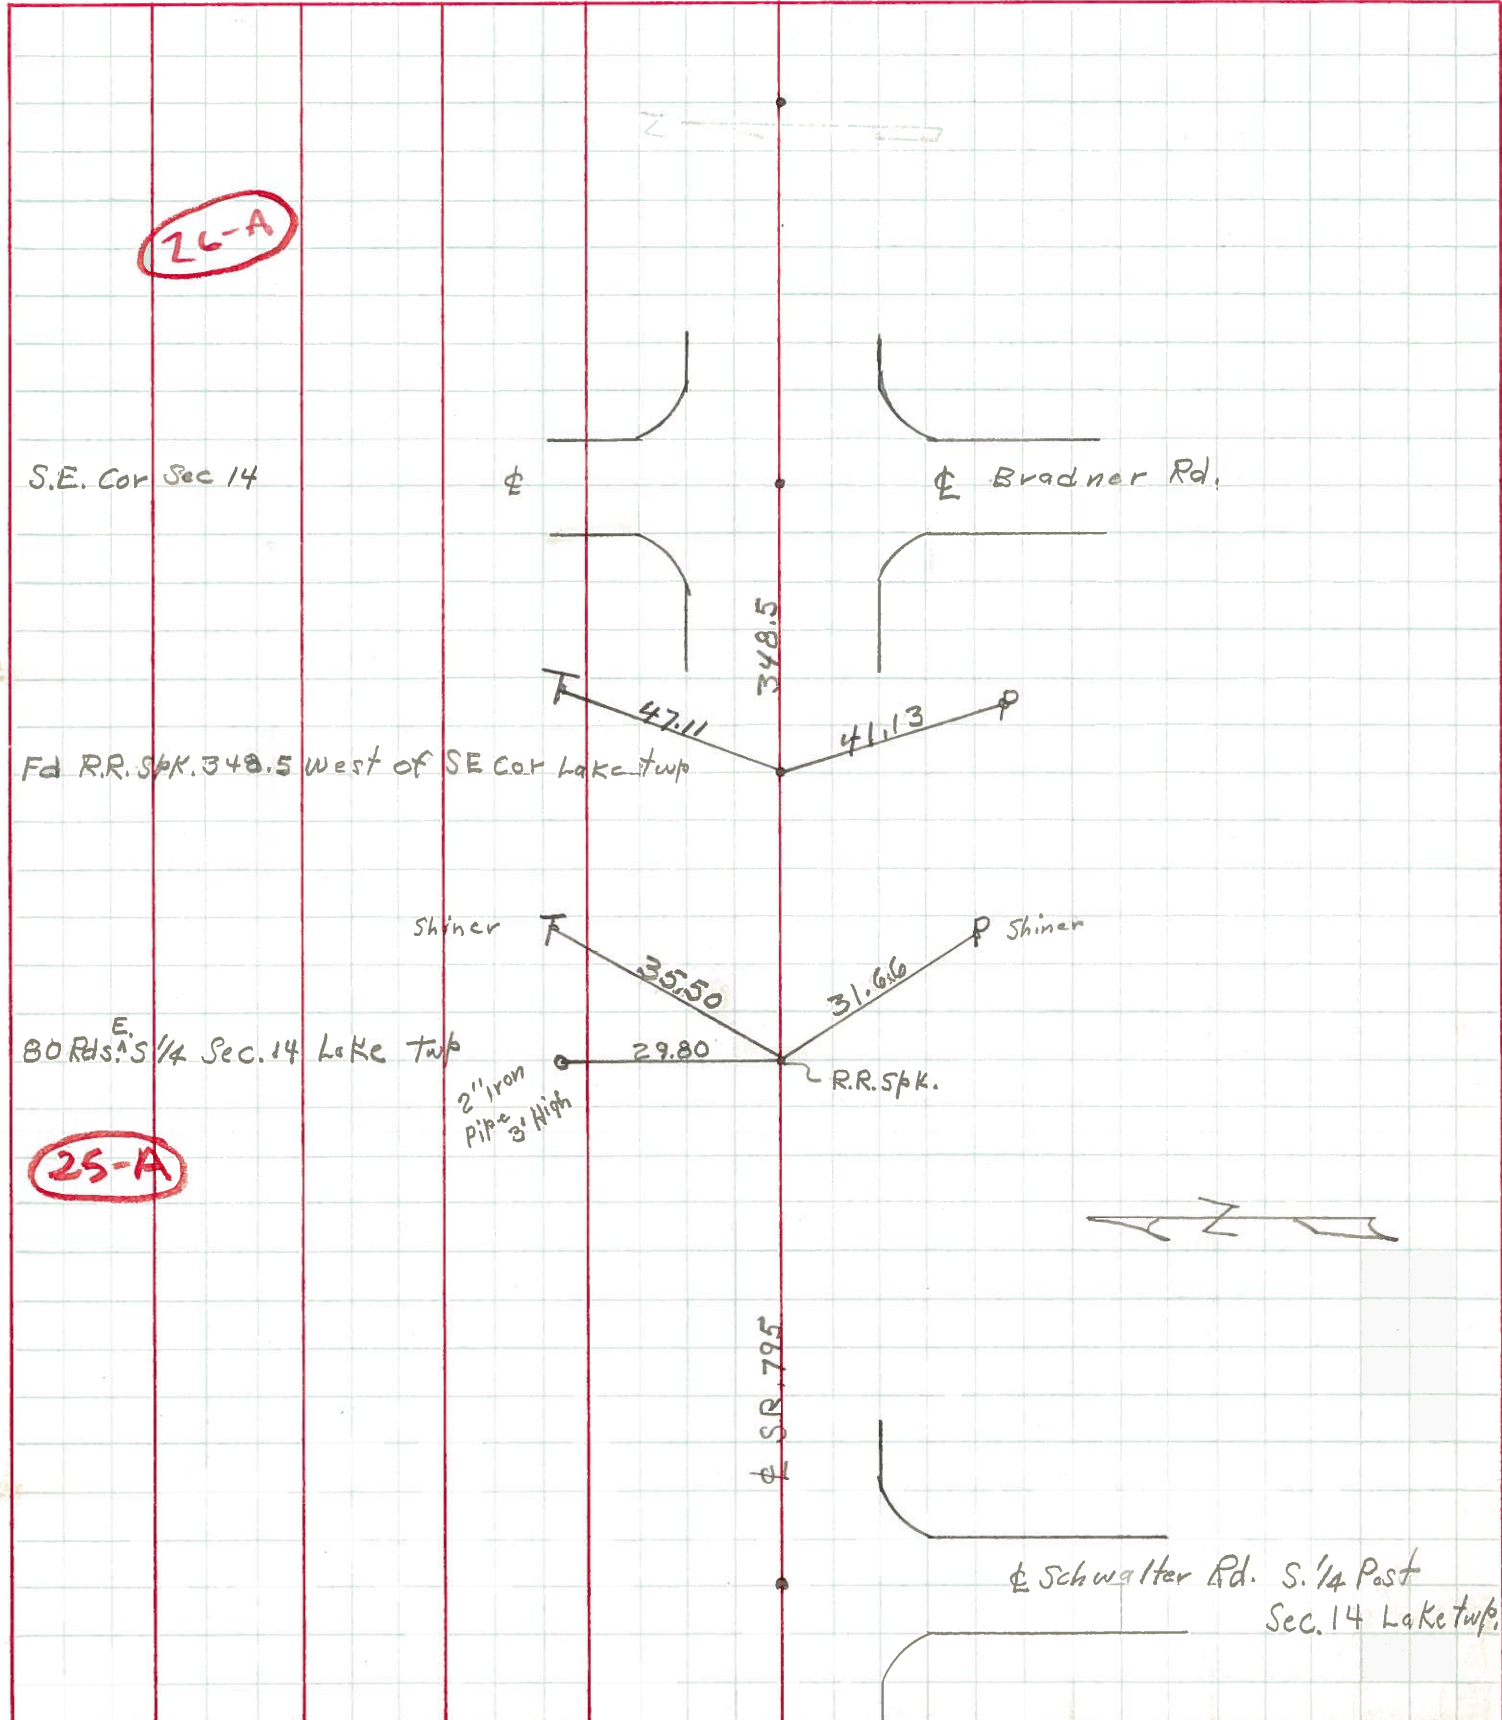 Z
26-A
S.E. Cor Sec 14
℄
℄ Bradner Rd.
348.5
47.11
41.13
Fd R.R. Spk. 348.5 west of SE Cor Lake twp
Shiner
Shiner
35.50
31.66
80 Rds. E. ^ S 1/4 Sec. 14 Lake Twp
29.80
R.R. Spk.
2" iron
Pipe 3' High
25-A
Z
℄ SR. 795
℄ Schwalter Rd. S. 1/4 Post
Sec. 14 Lake twp.